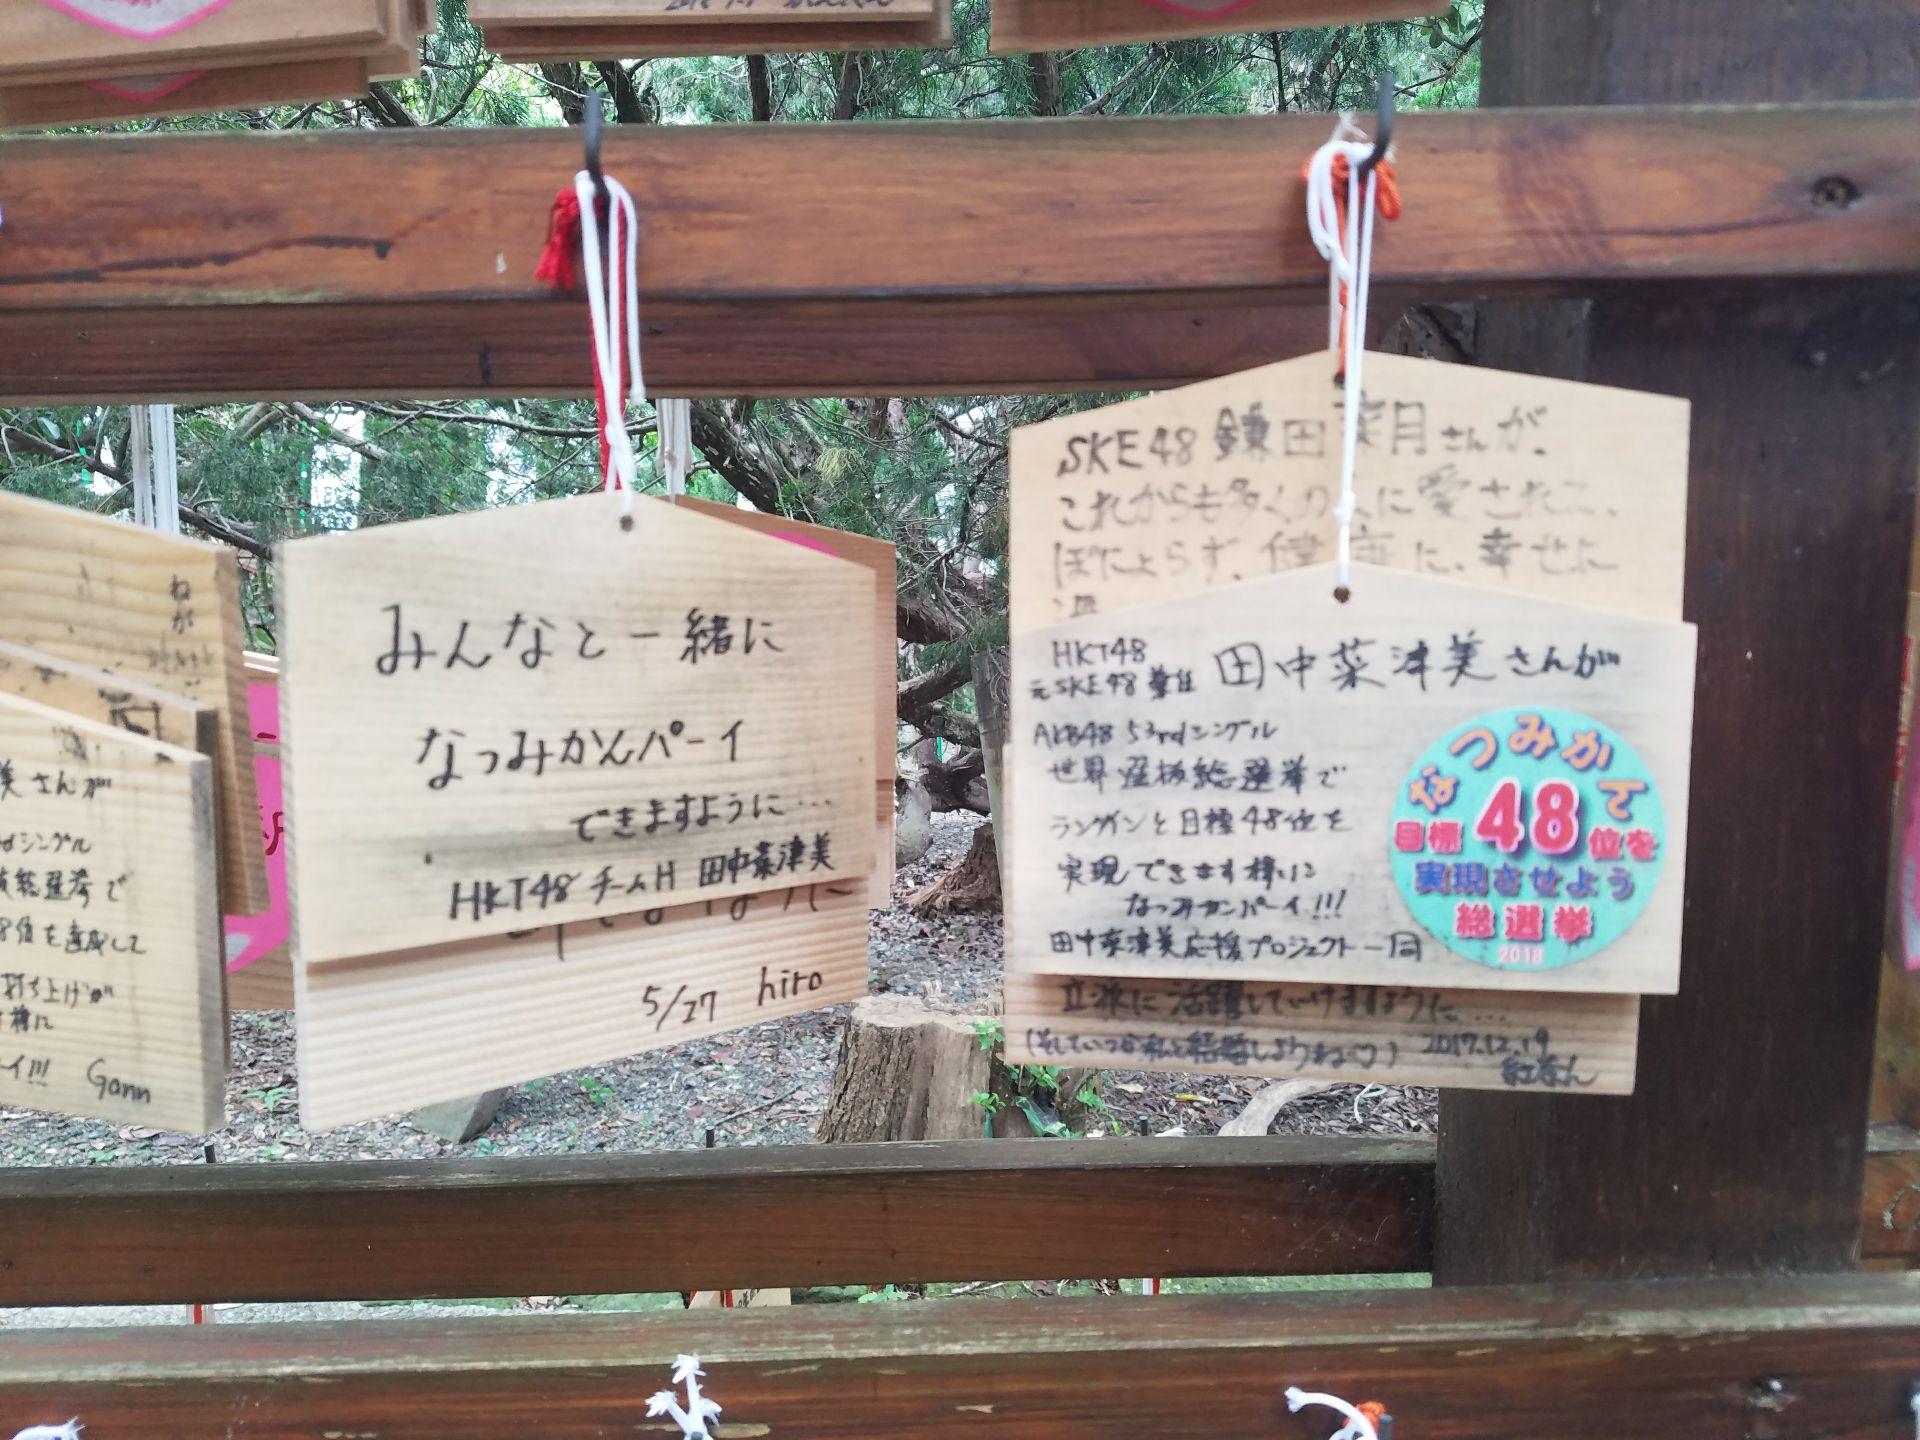 ねが
美さんが
シングル
総選挙で
8位を達成して
打ち上げが
様に
イ!!!
Gann
みんなと一緒に
なつみかんパーイ
できますように…
HKT48 チームH 田中菜津美
5/27 hiro
SKE48 鎌田菜月さんが、
これからも多くの人に愛されて、
ぽにょらず、健康に、幸せに
HKT48
元SKE48 兼任 田中菜津美さんが
AKB48 53rdシングル
世界選抜総選挙で
ランクインと目標48位を
実現できます様に
なつみカンパーイ!!!
田中菜津美応援プロジェクト一同
なつみかん
目標48位を
実現させよう
総選挙
2018
立派に活躍していけますように…
(そしていつか私と結婚しようね♡) 2017.12.19